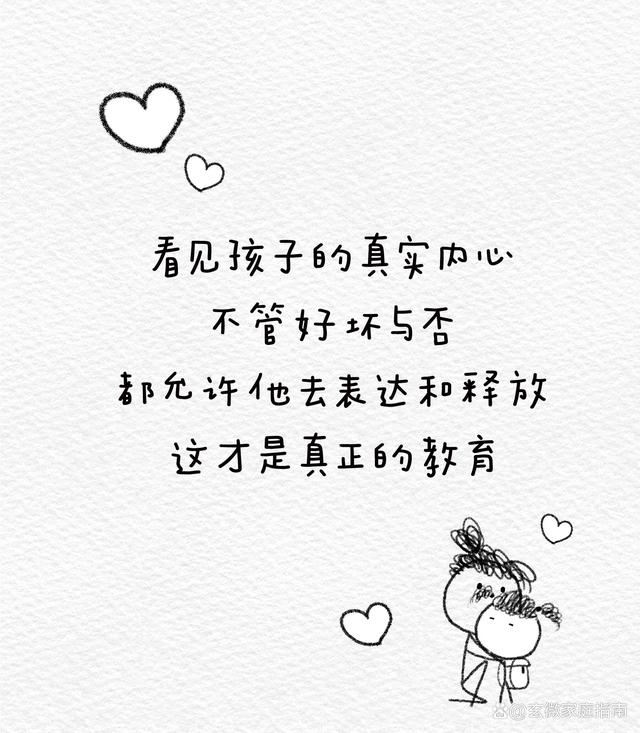 看见孩子的真实内心
不管好坏与否
都允许他去表达和释放
这才是真正的教育
@玄微家庭指南